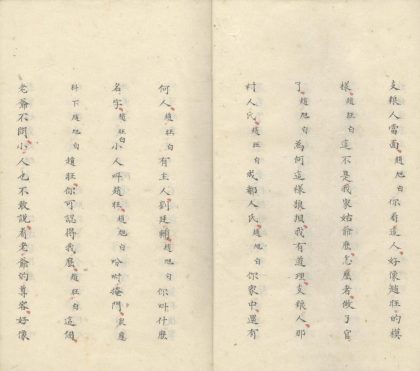 文娘人當面趙旭白你看這人好像趙旺的模
樣趙旺白這不是我家姑爺麼怎麼者做了官
了趙旭白為何這樣說我有道理文娘人那
村人氏趙旺白成都人氏趙旭白你家中還有
何人趙旺白有主人劉廷輔趙旭白你叫什麼
名字趙旺白小人叫趙旺趙旭白吩咐掩門眾應
科下趙旭白趙旺你可認得我麼趙旺白這個
老爺不問小人也不敢說看老爺的尊容好像